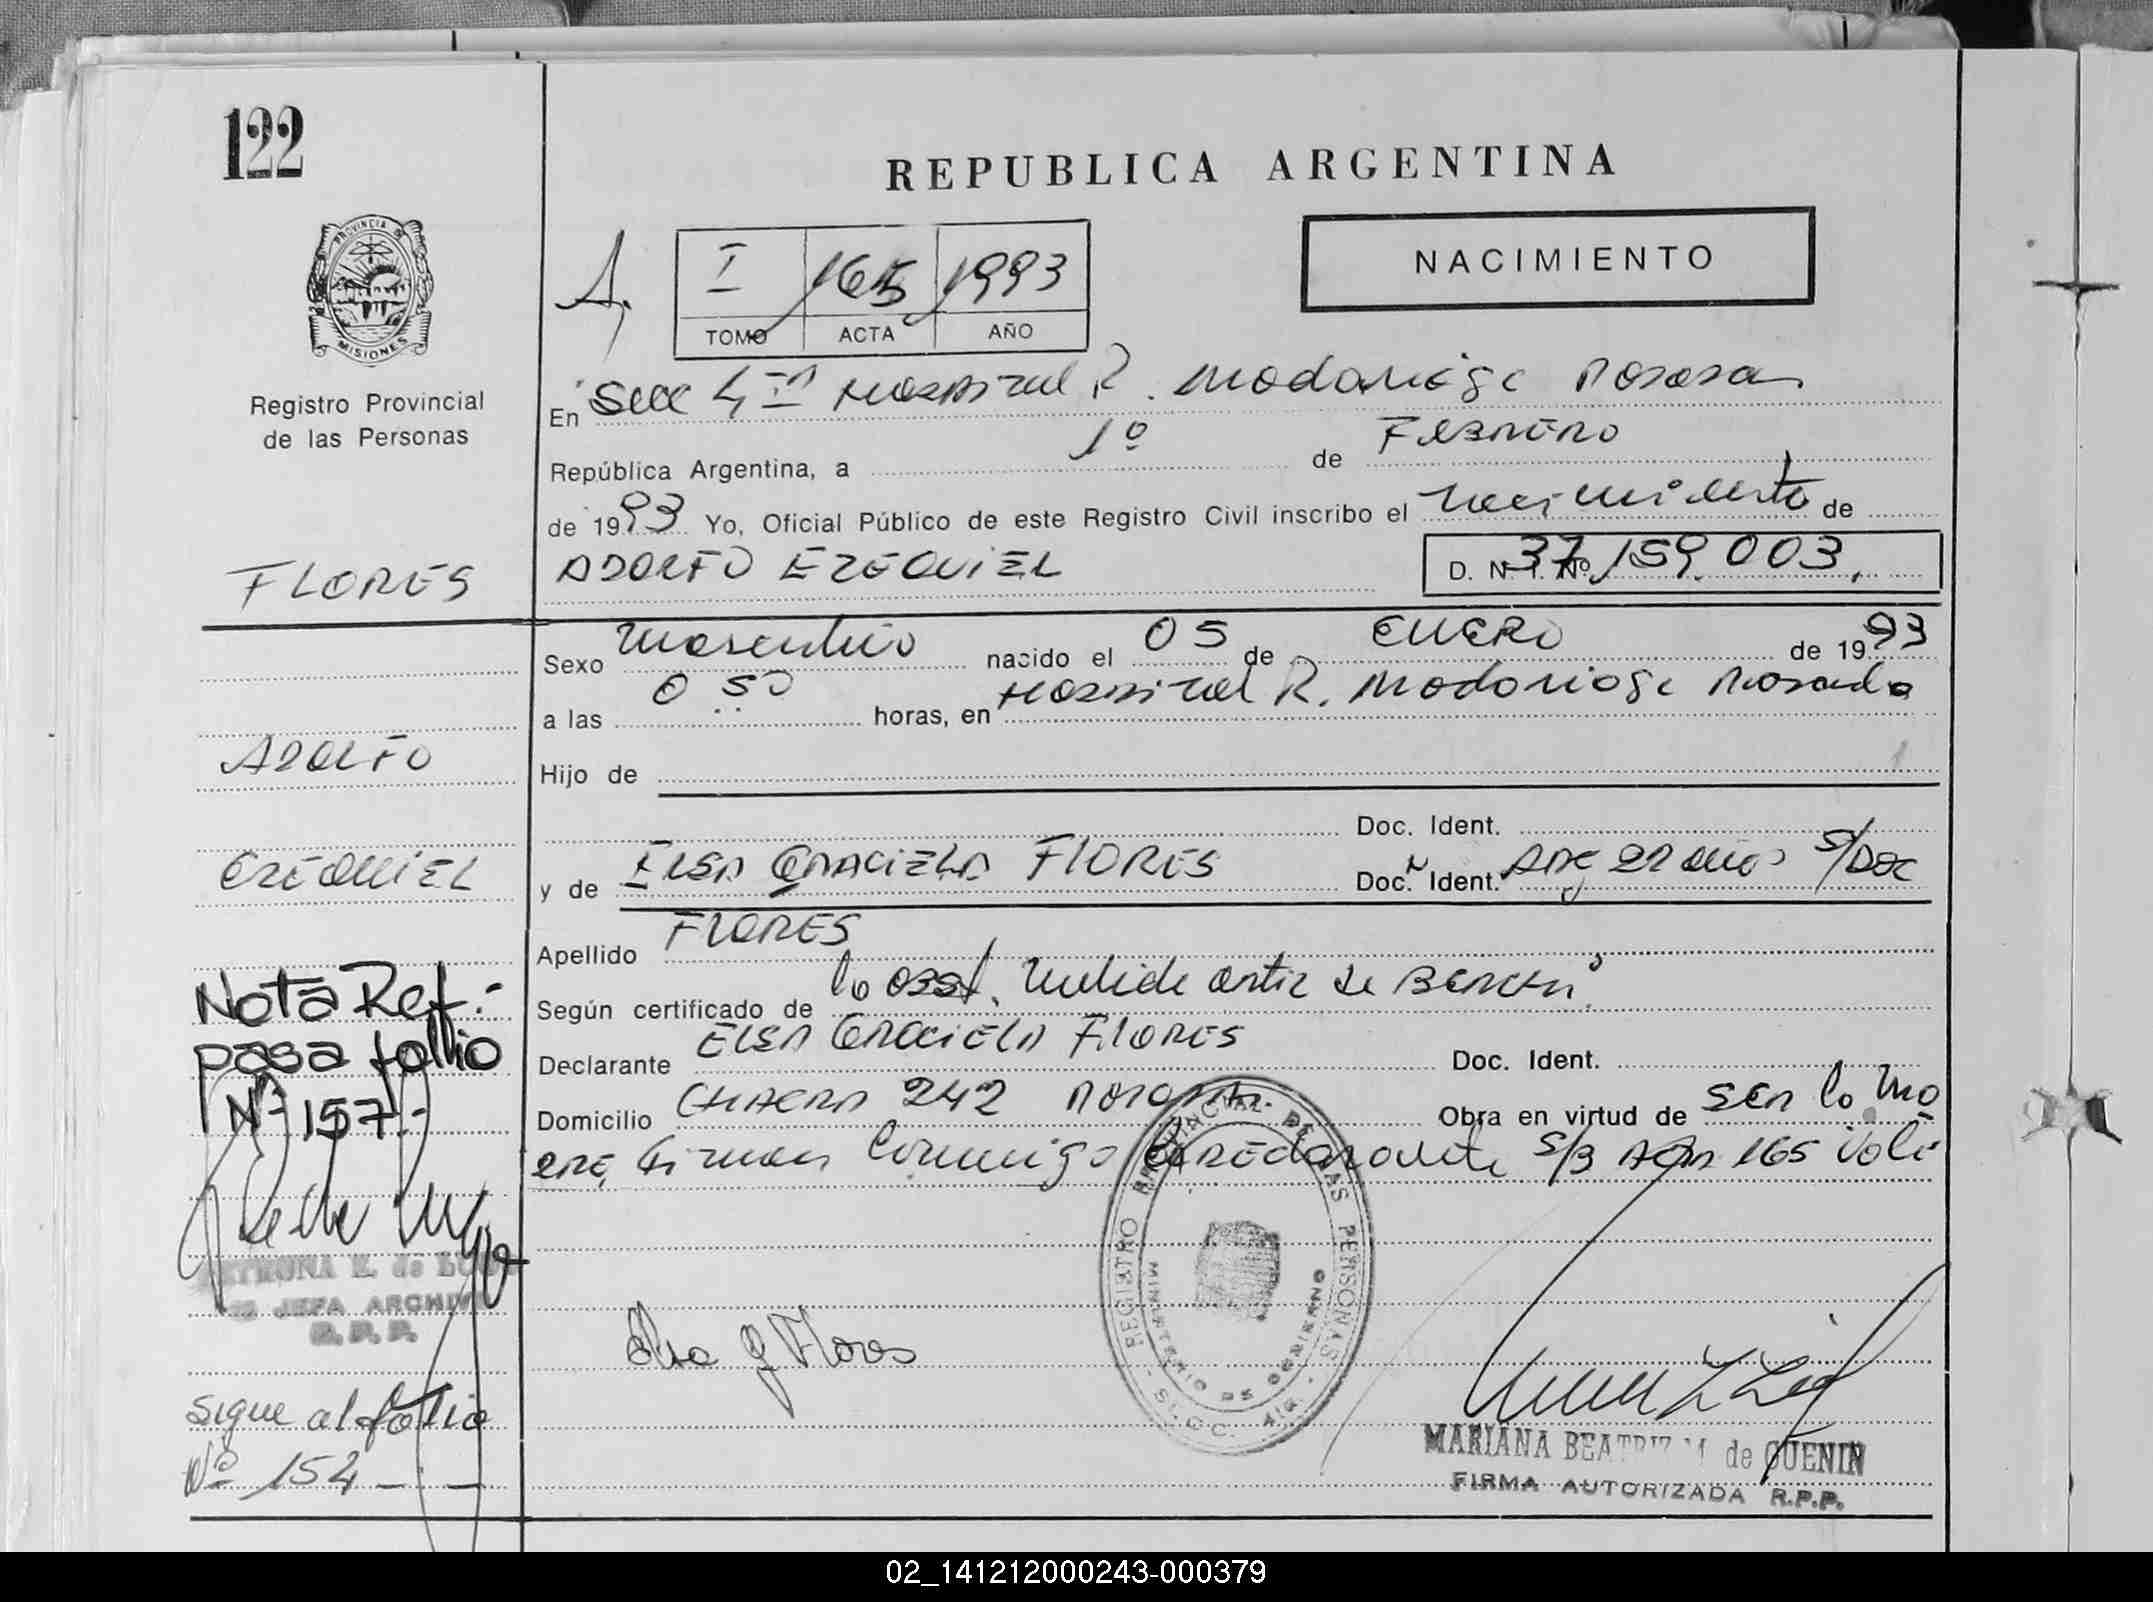 122
REPUBLICA ARGENTINA
PROVINCIA DE
MISIONES
Registro Provincial
de las Personas
NACIMIENTO
I 165 1993
TOMO ACTA AÑO
En Secc 4ta Hospital R. Madariaga Posadas
República Argentina, a 1º de FEBRERO
de 1993 Yo, Oficial Público de este Registro Civil inscribo el nacimiento de
FLORES
ADOLFO EZEQUIEL D. N. I. Nº 37.159.003.
Sexo masculino nacido el 05 de ENERO de 1993
a las 0 50 horas, en Hospital R. Madariaga Posadas
ADOLFO
Hijo de
Doc. Ident.
EZEQUIEL
y de ELSA GRACIELA FLORES Doc. Ident. ARG 22 años S/DOC
Apellido FLORES
Nota Ref:
Según certificado de la obst. Ortiz de
pasa follio
Declarante ELSA GRACIELA FLORES Doc. Ident.
Nº 157.-
Domicilio CHACRA 242 Obra en virtud de SER la MA
DRE, firman conmigo declarante S/B ACTA 165 Vale
PETRONA
JEFA ARCHIVO
R.P.P.
Elsa G Flores
REGISTRO PROVINCIAL DE LAS PERSONAS
MINISTERIO DE GOBIERNO
Sigue al folio
Nº 154 - -
MARIANA BEATRIZ M de GUENIN
FIRMA AUTORIZADA R.P.P.
02_141212000243-000379